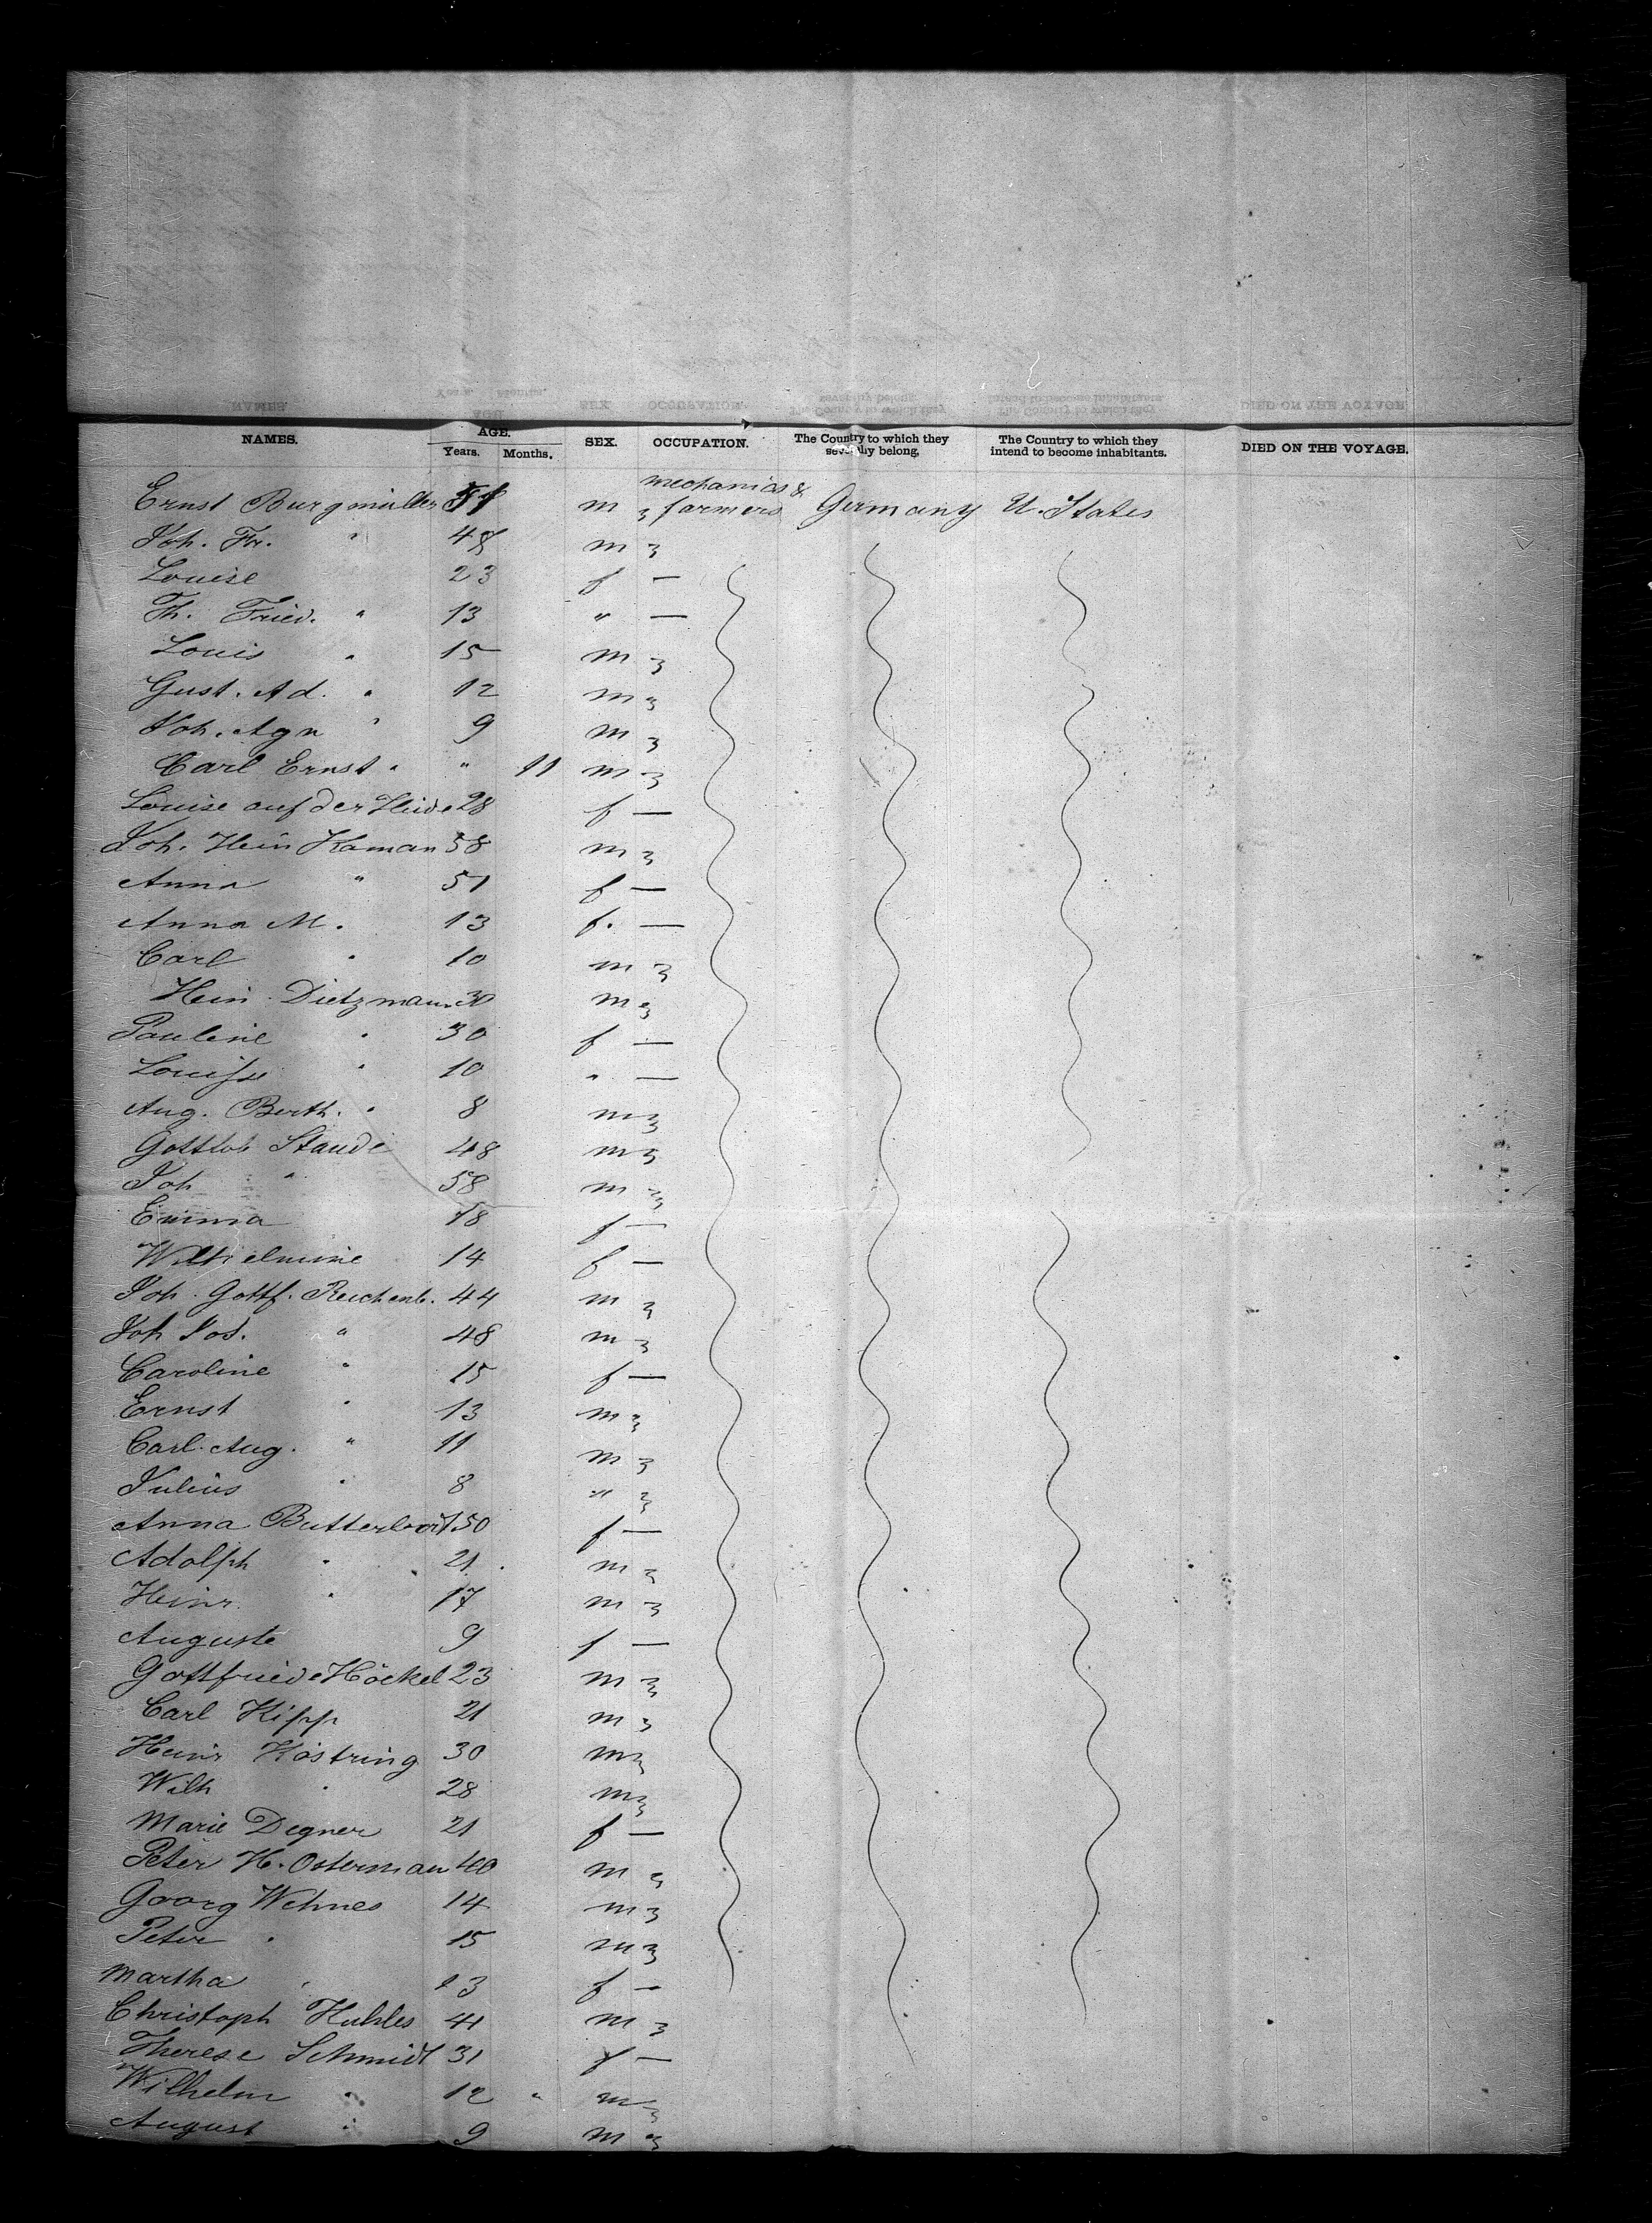 NAMES. AGE. SEX. OCCUPATION. The Country to which they severally belong, The Country to which they intend to become inhabitants. DIED ON THE VOYAGE.
Years. Months.
mechanics &
Ernst Burgmüller 51 m farmers Germany U. States
Joh. Fr. " 48 m
Louise 23 f —
Th. Fried. " 13 " —
Louis " 15 m
Gust. Ad. " 12 m
Joh. Agn " 9 m
Carl Ernst " " 11 m
Louise auf der Heide 28 f —
Joh. Hein Kaman 58 m
Anna " 51 f —
Anna M. 13 f. —
Carl " 10 m
Hein Dietzmann 30 m
Pauline " 30 f —
Louise " 10 " —
Aug. Berth. " 8 m
Gottlob Staude 48 m
Joh " 58 m
Emma 18 f —
Wilhelmine 14 f —
Joh. Gottf. Reichenb. 44 m
Joh Jos. " 48 m
Caroline " 15 f —
Ernst " 13 m
Carl Aug. " 11 m
Julius " 8 " 
Anna Butterbrodt 50 f —
Adolph " 21 m
Heinr. " 17 m
Auguste 9 f —
Gottfried Höckel 23 m
Carl Kipp 21 m
Heinr Köstring 30 m
Wilh " 28 m
Marie Degner 21 f —
Peter H. Osterman 40 m
Georg Wehnes 14 m
Peter " 15 m
Martha " 13 f —
Christoph Huhles 41 m
Therese Schmidt 31 f —
Wilhelm " 12 " m
August " 9 m